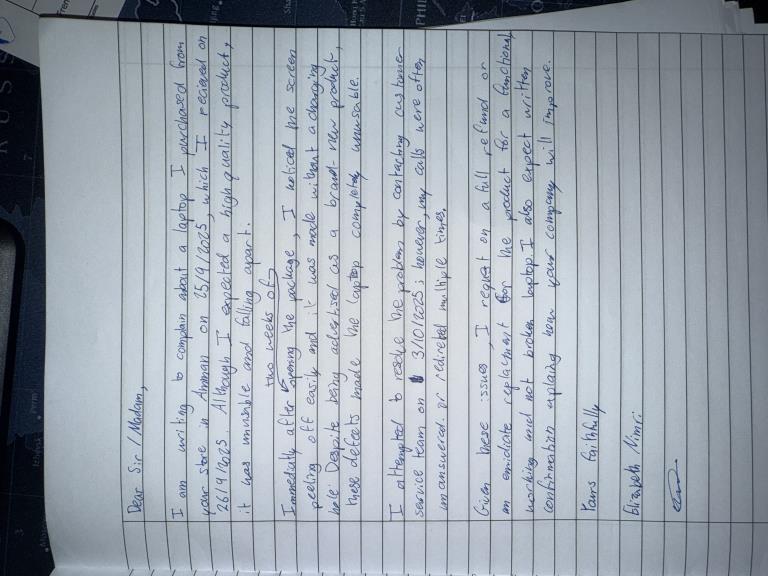 Dear Sir / Madam,
I am writing to complain about a laptop I purchased from
your store in Amman on 25/9/2025, which I recieved on
26/9/2025. Although I expected a high quality product,
it was unusable and falling apart.
two weeks of
Immediatly after opening the package, I noticed the screen
peeling off easily and it was made without a charging
hole. Despite being advertised as a brand-new product,
these defects made the laptop completely unusable.
I attempted to resolve the problem by contacting customer
service team on 3/10/2025; however, my calls were often
unanswered or redirected multiple times.
Given these issues, I request on a full refund or
an emidiate replacment for the product for a functional,
working and not broken laptop. I also expect written
confirmation explaing how your company will improve.
Yours faithfully
Elizabeth Nimri